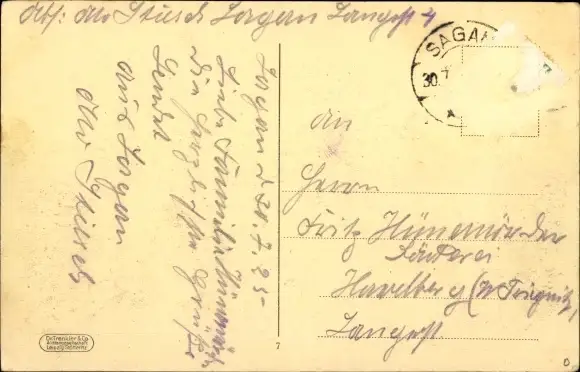 Abs: Otto Stusch Sagan Langest 4
SAGAN
30.7
Sagan d 30.7.25
Liebe Familie Hünemörder
Die herzlichsten Grüße
Sendet
aus Sagan
Otto Stusch
An
Herrn
Fritz Hünemörder
Bäckerei
Havelberg (W Prignitz)
Langest
Dr. Trenkler & Co.
Aktiengesellschaft
Leipzig
7